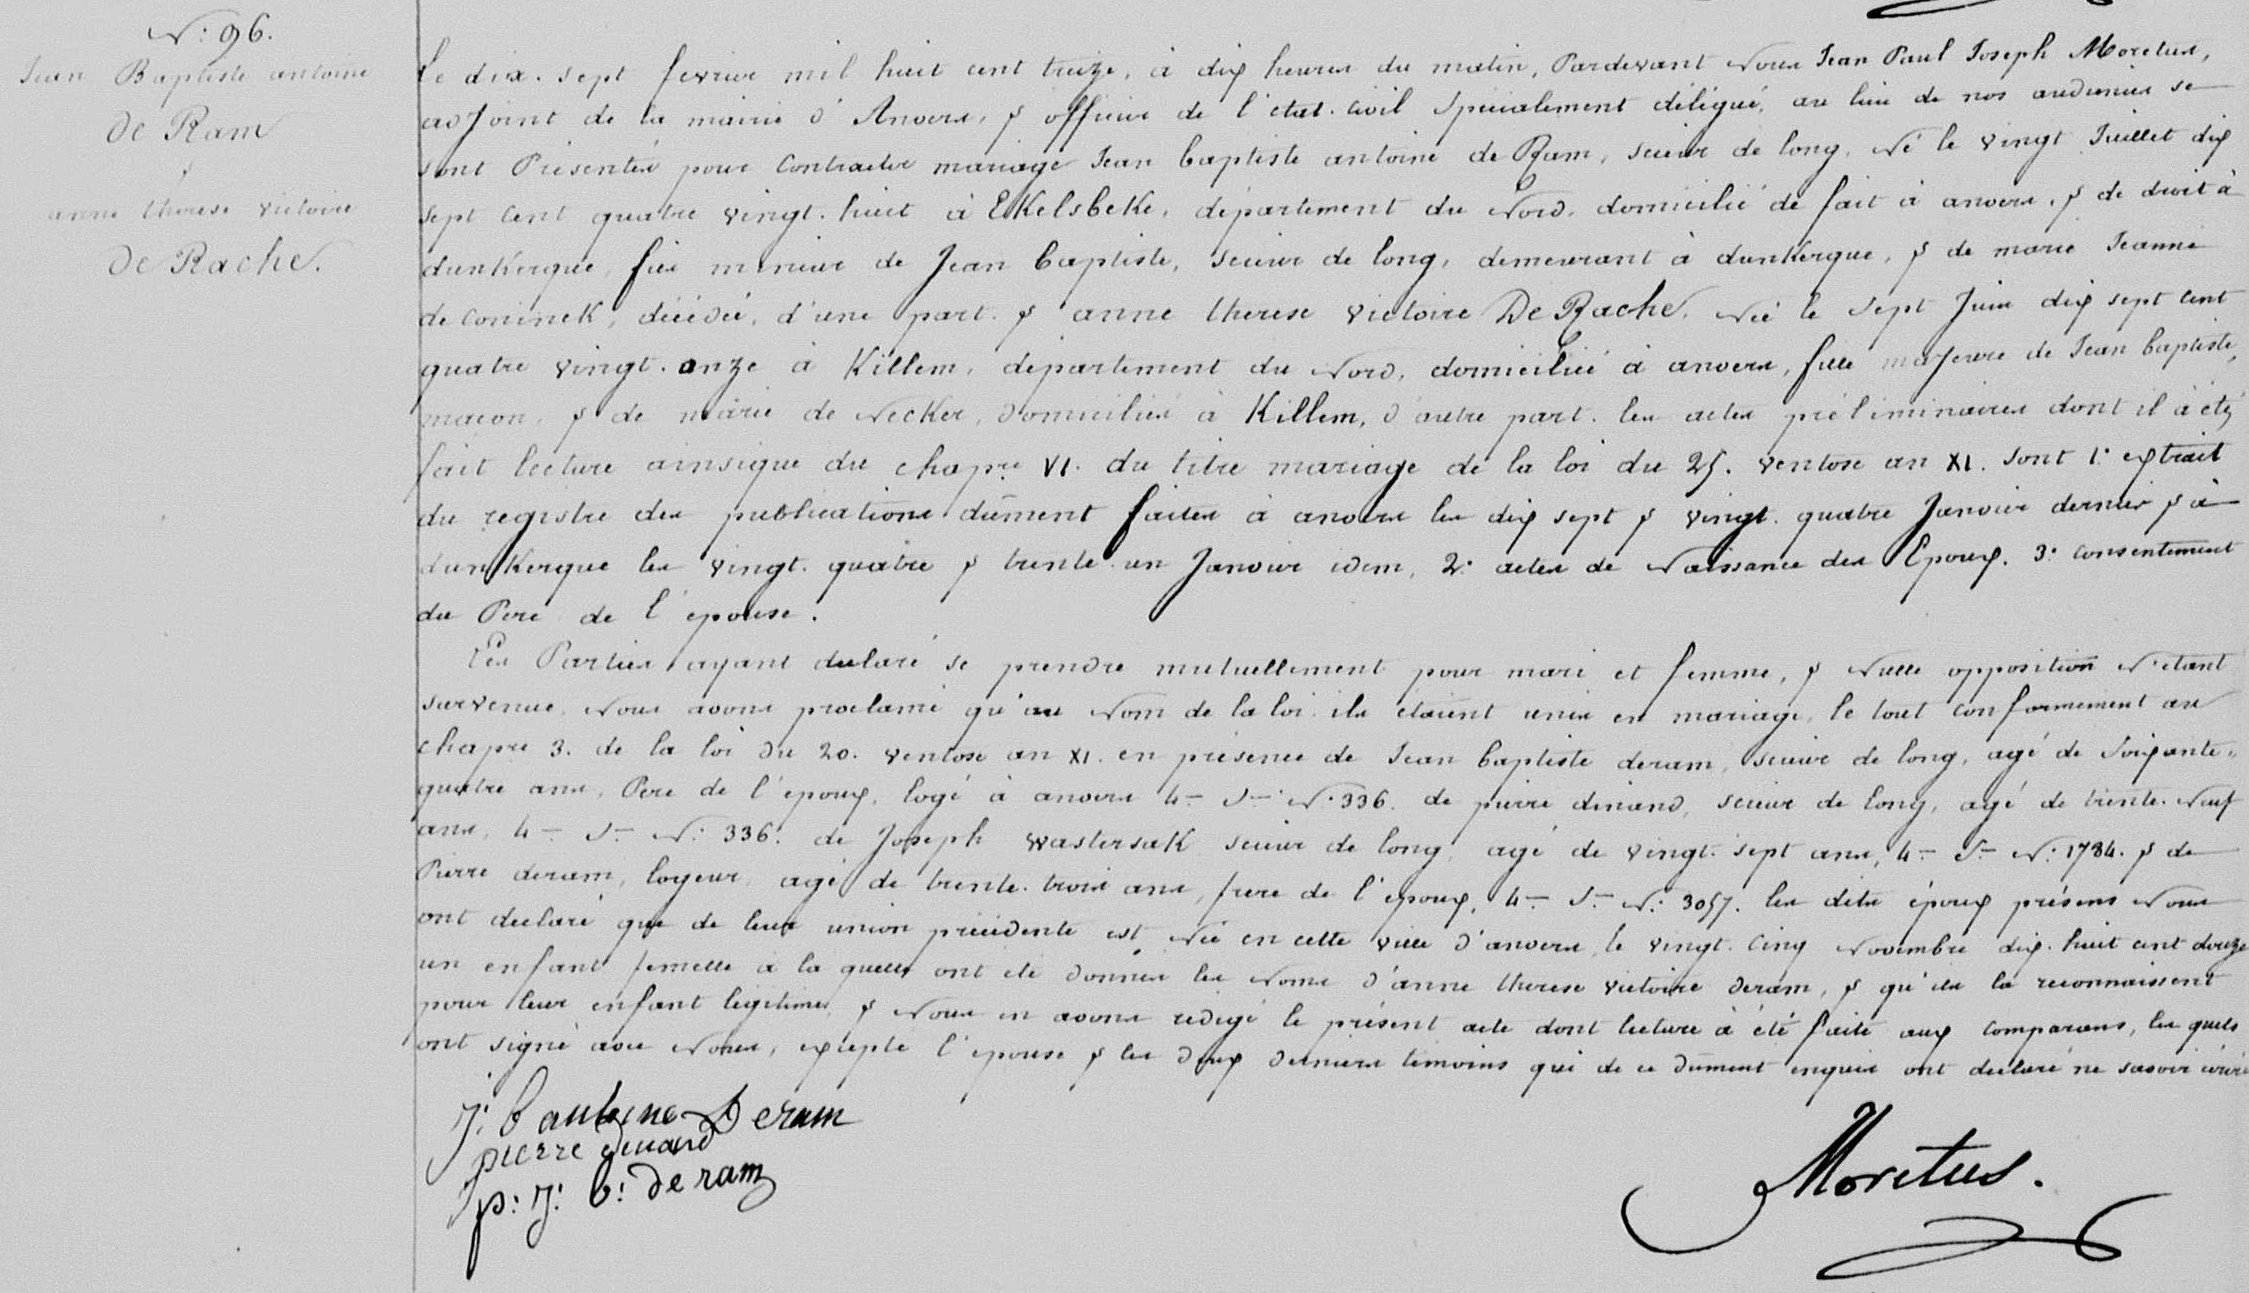 N.° 96.
Jean Baptiste antoine
de Ram
&
anne therese victoire
De Rache.
Le dix. sept fevrier mil huit cent treize, à dix heures du matin, Pardevant Nous Jean Paul Joseph Moretus,
adjoint de la mairie d'Anvers, & officier de l'etat. civil Specialement délégué, au lieu de nos audiences se
sont Présentés pour Contracter mariage Jean baptiste antoine de Ram, scieur de long, Né le vingt Juillet dix
sept Cent quatre vingt. huit à EKelsbeKe, département du Nord, domicilié de fait à anvers, & de droit à
dunKerque, fils mineur de Jean baptiste, scieur de long, demeurant à dunKerque, & de marie Jeanne
de coninck, décédée, d'une part. & anne therese victoire De Rache, Née le Sept Juin dix sept cent
quatre vingt. onze à Killem, département du Nord, domiciliée à anvers, fille majeure de Jean baptiste,
maçon, & de marie de NecKer, domiciliés à Killem, d'autre part. les actes préliminaires dont il à été
fait lecture ainsique du chapre VI. du titre mariage de la loi du 25. ventose an XI. sont 1.° extrait
du registre des publications dûment faites à anvers les dix sept & vingt. quatre Janvier dernier & à
dunKerque les vingt. quatre & trente. un Janvier idem, 2.° actes de Naissance des Epoux. 3.° consentement
du Pere de l'epouse.
Les Parties ayant declaré se prendre mutuellement pour mari et femme, & Nulle opposition N'etant
survenue, Nous avons proclamé qu'au Nom de la loi ils étaient unis en mariage, le tout conformement au
chapre 3. de la loi du 20. ventose an XI. en présence de Jean baptiste deram, scieur de long, agé de Soixante=
quatre ans, Pere de l'époux, logé à anvers 4.- S.- N.° 336. de pierre dinand, scieur de long, agé de trente. Neuf
ans, 4.- S.- N.° 336. de Joseph wastersaK scieur de long, agé de vingt. sept ans, 4.- S.- N.° 1784. & de
Pierre deram, loyeur, agé de trente. trois ans, frere de l'époux, 4.- S.- N.° 3057. les dits époux présens Nous
ont declaré que de leur union précédente est Née en cette ville d'anvers, le vingt. cinq Novembre dix. huit cent douze
un enfant femelle à la quelle ont été donnés les Noms d'anne therese victoire deram, & qu'ils la reconnaissent
pour leur enfant legitime, & Nous en avons redigé le présent acte dont lecture à été faite aux comparans, les quels
ont signé avec Nous, excepté l'epouse & les deux derniers témoins qui de ce dûment enquis ont declaré ne savoir écrire
J: b antoine Deram
pierre dinand
p: J: b: de ram
Moretus.